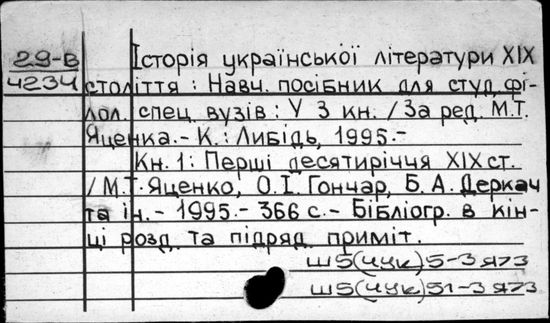 29-В
4234
Історія української літератури XIX
століття : Навч. посібник для студ. філ-
ол. спец. вузів : У 3 кн. / За ред. М.Т.
Яценка. - К. : Либідь, 1995. -
Кн. 1 : Перші десятиріччя XIX ст.
/ М.Т. Яценко, О.І. Гончар, Б.А. Деркач
та ін. - 1995. - 366 с. - Бібліогр. в кін-
ці розд. та підряд. приміт.
Ш5(4УК)5-3 я73
Ш5(4УК)51-3 я73